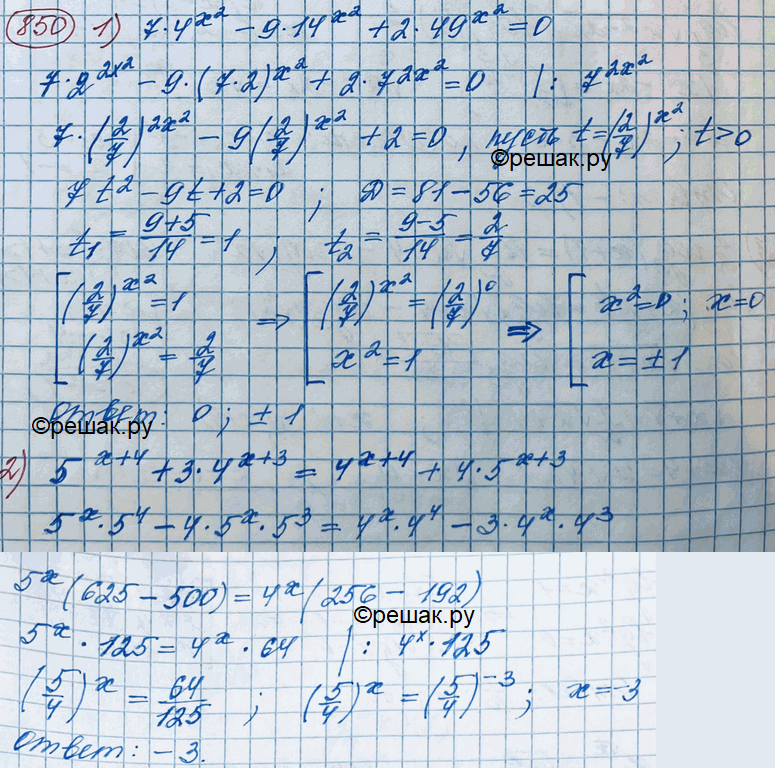 850 1) 7·4^x² − 9·14^x² + 2·49^x² = 0
7·2^2x² − 9·(7·2)^x² + 2·7^2x² = 0 | : 7^2x²
7·(2/7)^2x² − 9(2/7)^x² + 2 = 0, пусть t = (2/7)^x²; t > 0
©решак.ру
7t² − 9t + 2 = 0; D = 81 − 56 = 25
t₁ = (9+5)/14 = 1; t₂ = (9−5)/14 = 2/7
[ (2/7)^x² = 1 => [ (2/7)^x² = (2/7)^0 => [ x² = 0; x = 0
(2/7)^x² = 2/7 x² = 1 x = ±1
Ответ: 0; ±1
©решак.ру
2) 5^(x+4) + 3·4^(x+3) = 4^(x+4) + 4·5^(x+3)
5^x·5^4 − 4·5^x·5^3 = 4^x·4^4 − 3·4^x·4^3
5^x(625 − 500) = 4^x(256 − 192)
©решак.ру
5^x·125 = 4^x·64 | : 4^x·125
(5/4)^x = 64/125; (5/4)^x = (5/4)^−3; x = −3
Ответ: −3.